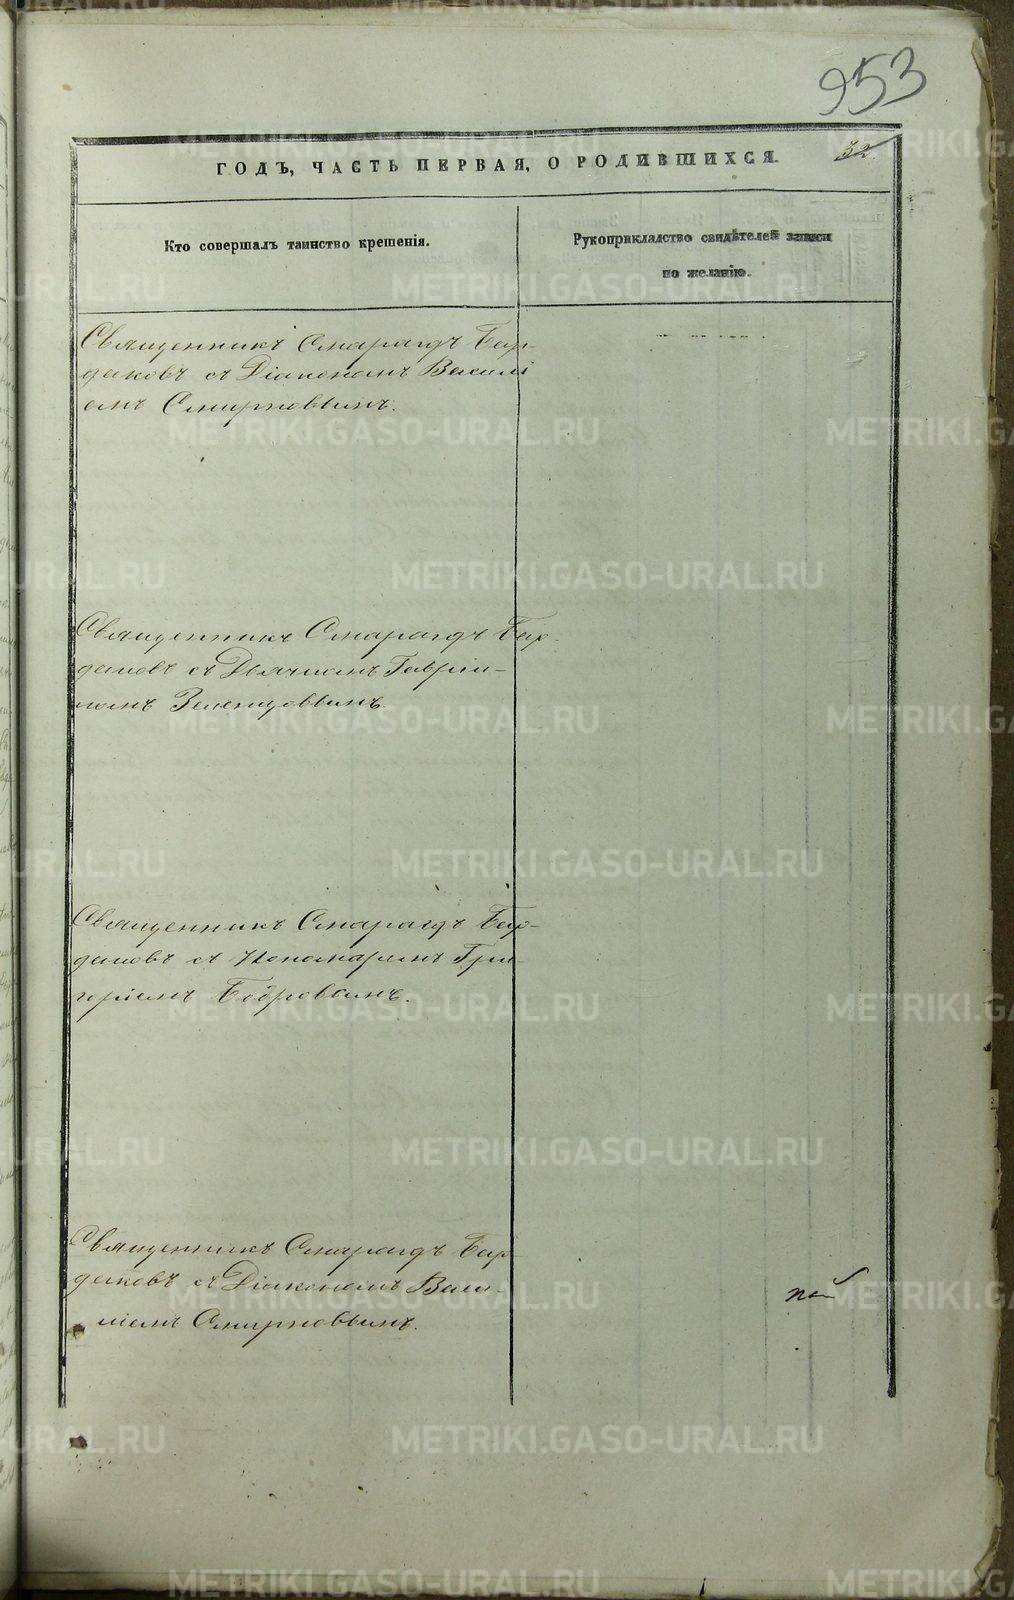 953
32.
ГОДЪ, ЧАСТЬ ПЕРВАЯ, О РОДИВШИХСЯ.
Кто совершалъ таинство крещенія.
Рукоприкладство свидѣтелей записи
по желанію.
Священникъ Смарагдъ Бар-
даковъ съ Діакономъ Василі
емъ Смирновымъ.
Священникъ Смарагдъ Бар-
даковъ съ Дьячкомъ Гаврiи-
ломъ Зеленцовымъ.
Священникъ Смарагдъ Бар-
даковъ съ Пономаремъ Гри-
горіемъ Бобровымъ.
Священникъ Смарагдъ Бар-
даковъ съ Діакономъ Васи-
ліемъ Смирновымъ.
METRIKI.GASO-URAL.RU